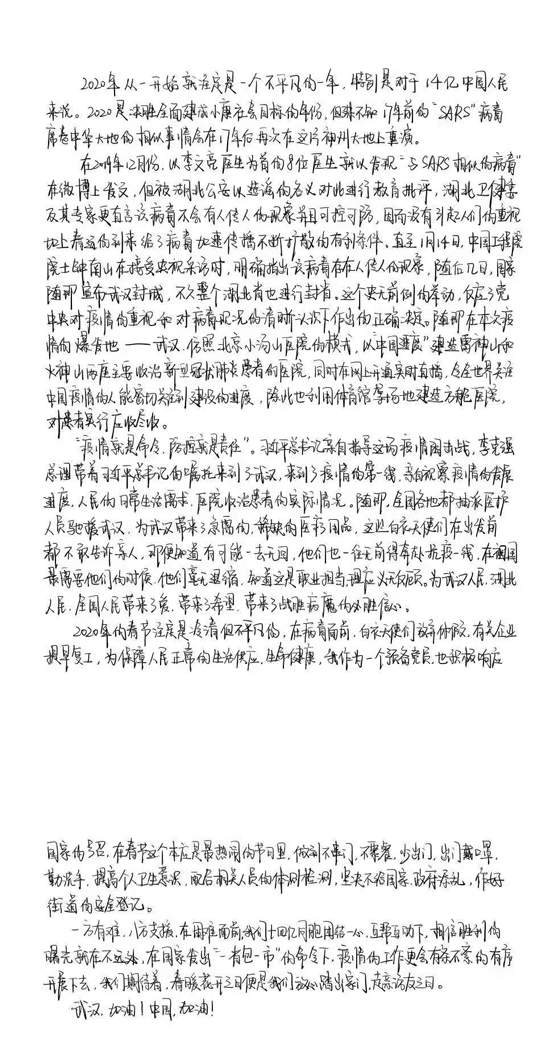 2020年从一开始就注定是一个不平凡的一年，特别是对于14亿中国人民
来说。2020是决胜全面建成小康社会目标的年份，但殊不知17年前的“SARS”病毒
席卷中华大地的相似事情会在17年后再次在这片神州大地上重演。
在2019年12月份，以李文亮医生为首的8位医生就以发现“与SARS相似的病毒”
在微博上发文，但被湖北公安以造谣的名义对此进行教育批评，湖北卫健委
及其专家更直言该病毒不会有人传人的现象并且可控可防，因而没有引起人们的重视
加上春运的到来给了病毒加速传播不断扩散的有利条件。直至1月14日，中国工程院
院士钟南山在接受央视采访时，明确指出该病毒存在人传人的现象，随后几日，国家
随即宣布武汉封城，不久整个湖北省也进行封省。这个史无前例的举动，反应了党
中央对疫情的重视和对病毒现况的清晰认识下作出的正确决定。随即在本次疫
情的爆发地——武汉，仿照北京小汤山医院的模式，以“中国速度”建造雷神山和
火神山两座主要收治新型冠状肺炎患者的医院，同时在网上开通实时直播，令全世界关注
中国疫情的人能密切关注到建设的进度，除此也利用体育馆等场地建造方舱医院，
对患者实行应收尽收。
“疫情就是命令，防控就是责任”。习近平总书记亲自指导这场疫情阻击战，李克强
总理带着习近平总书记的嘱托来到了武汉，来到了疫情的第一线，亲自视察疫情的发展
进度、人民的日常生活需求、医院收治患者的实际情况。随即，全国各地都抽派医疗
人员驰援武汉，为武汉带来了急需的、稀缺的医疗用品，这些白衣天使们在出发前
都不敢告诉亲人，即便知道有可能一去无回，他们也一往无前得奔赴抗疫一线，在祖国
最需要他们的时候，他们毫无退缩，知道这是职业担当，理应义无反顾。为武汉人民、湖北
人民、全国人民带来了爱，带来了希望，带来了战胜病魔的必胜信心。
2020年的春节注定是冷清但不平凡的，在病毒面前，白衣天使们放弃休假，有关企业
提早复工，为保障人民正常的生活供应、生命健康，我作为一个预备党员，也积极响应
国家的号召，在春节这个本应是最热闹的节日里，做到不串门，不聚餐，少出门，出门戴口罩，
勤洗手，提高个人卫生意识，配合相关人员的体测检测，坚决不给国家、政府添乱，作好
街道的安全登记。
一方有难，八方支援，在困难面前，我们十四亿同胞团结一心，互帮互助下，相信胜利的
曙光就在不远处，在国家发出“一省包一市”的命令下，疫情的工作更会有条不紊的有序
开展下去，我们期待着，春暖花开之日便是我们放心踏出家门，走亲访友之日。
武汉，加油！中国，加油！